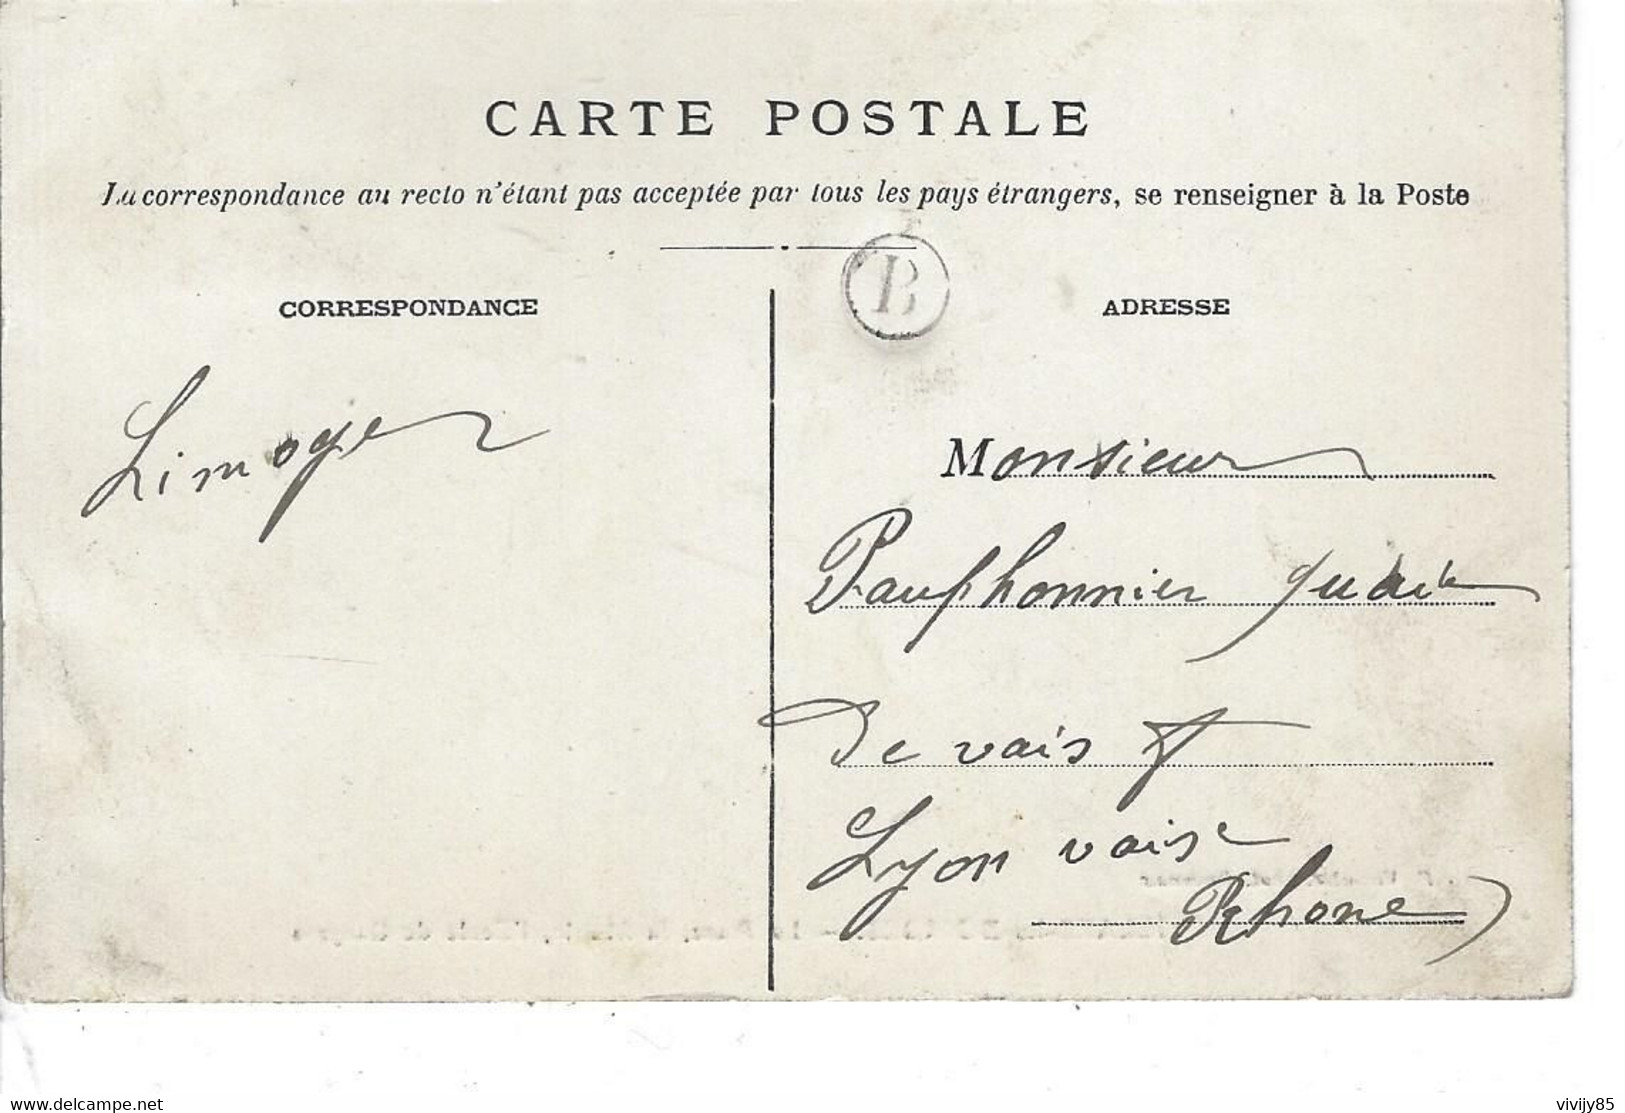 CARTE POSTALE
La correspondance au recto n'étant pas acceptée par tous les pays étrangers, se renseigner à la Poste
B
CORRESPONDANCE
ADRESSE
Limoges
Monsieur
Pauphonnier quai
de vais
Lyon vaise
Rhone
www.delcampe.net
vivijy85